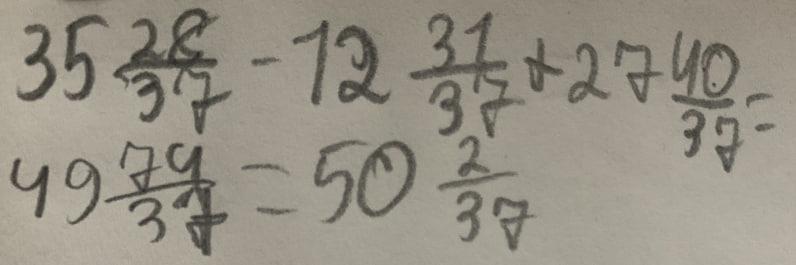 35 28/37 - 12 31/37 + 27 40/37 =
49 74/37 = 50 2/37